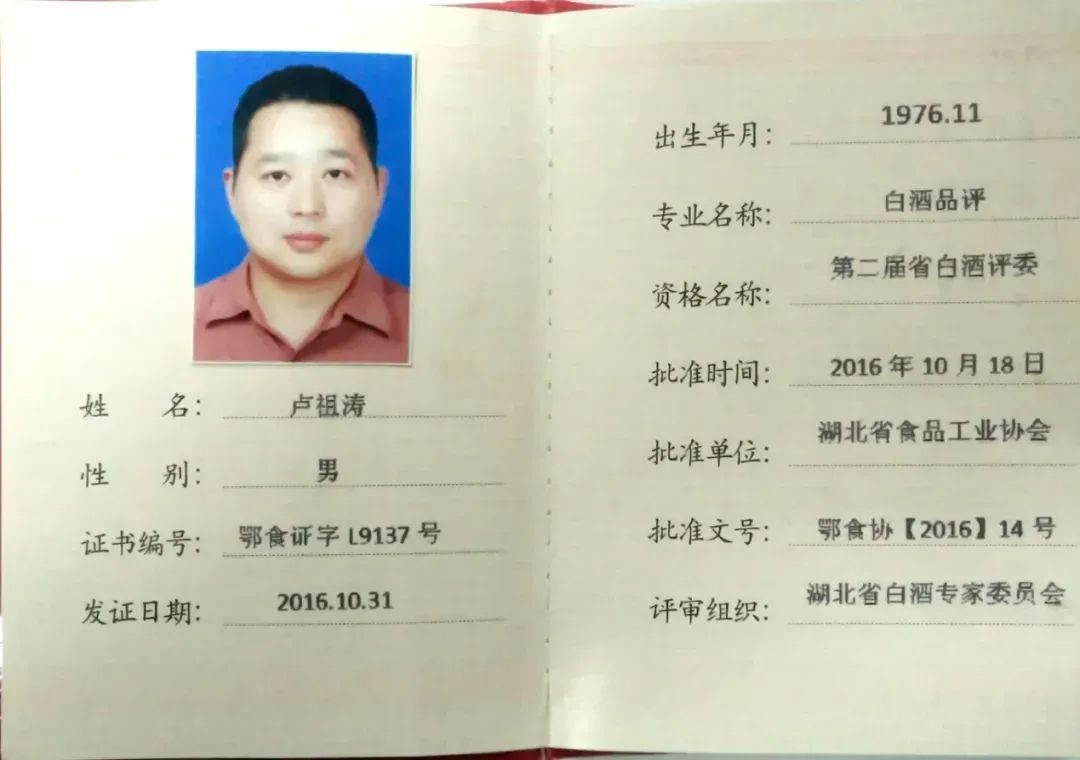 姓 名： 卢祖涛
性 别： 男
证书编号： 鄂食证字 L9137 号
发证日期： 2016.10.31
出生年月： 1976.11
专业名称： 白酒品评
资格名称： 第二届省白酒评委
批准时间： 2016 年 10 月 18 日
批准单位： 湖北省食品工业协会
批准文号： 鄂食协【2016】14 号
评审组织： 湖北省白酒专家委员会